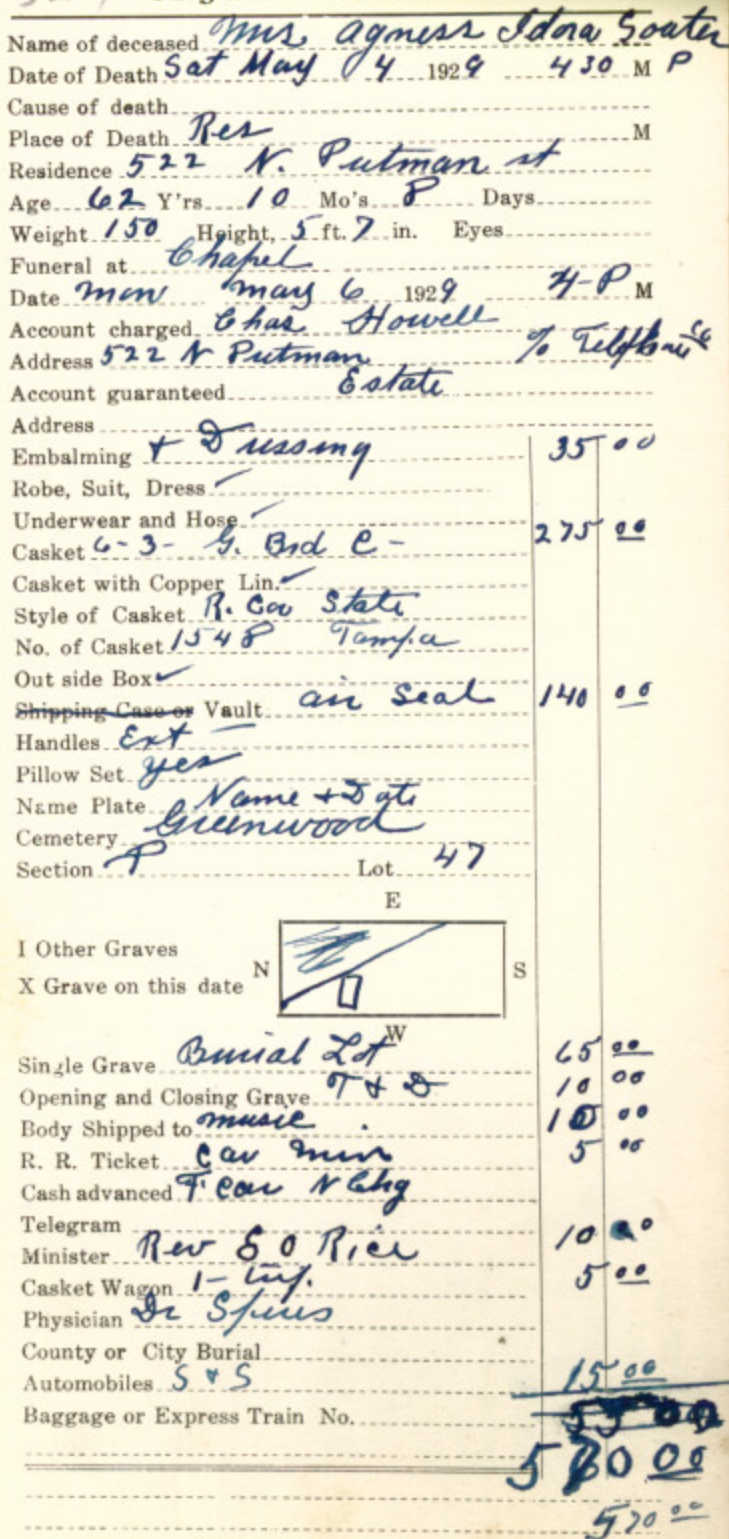 Name of deceased Mrs. Agness Idora Soater
Date of Death Sat May 4 1929 4 30 M P
Cause of death
Place of Death Res M
Residence 522 N. Putman st
Age 62 Y'rs 10 Mo's 8 Days
Weight 150 Height, 5 ft. 7 in. Eyes
Funeral at Chapel
Date Mon May 6 1929 4-P M
Account charged Chas Howell
Address 522 N Putman % Telephone Co
Account guaranteed Estate
Address
Embalming + Dressing 35 00
Robe, Suit, Dress ✓
Underwear and Hose ✓
Casket 6-3- G. Brd C- 275 00
Casket with Copper Lin. ✓
Style of Casket R. Cor State
No. of Casket 1548 Tampa
Out side Box ✓
Shipping Case or Vault air seal 140 00
Handles Ext
Pillow Set yes
Name Plate Name + Date
Cemetery Greenwood
Section P Lot 47
E
I Other Graves
N S
X Grave on this date
W
Single Grave Burial Lot 65 00
Opening and Closing Grave T & D 10 00
Body Shipped to music 10 00
R. R. Ticket Car Min 5 00
Cash advanced F Car N Chg
Telegram
Minister Rev S O Rice 10 00
Casket Wagon 1- 5 00
Physician Dr
County or City Burial
Automobiles S & S 15 00
Baggage or Express Train No.
570 00
570 00